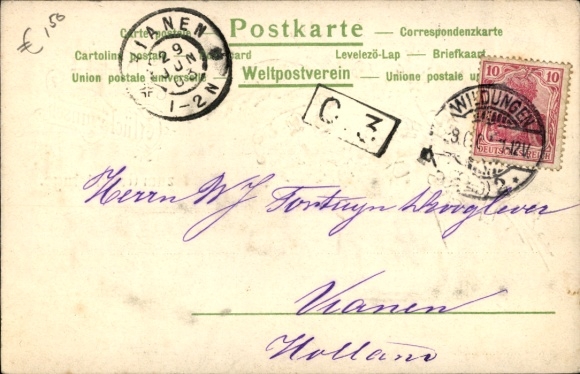 € 1,50
Carte postale — Postkarte — Correspondenzkarte
Cartolina postale — card Levelező-Lap — Briefkaart
Union postale universelle — Weltpostverein — Unione postale u
VIANEN
29
JUN
1-2N
C. 3
10 10
DEUTSCHES REICH
WILDUNGEN
Herrn W J Fortuyn Drooglever
Vianen
Holland